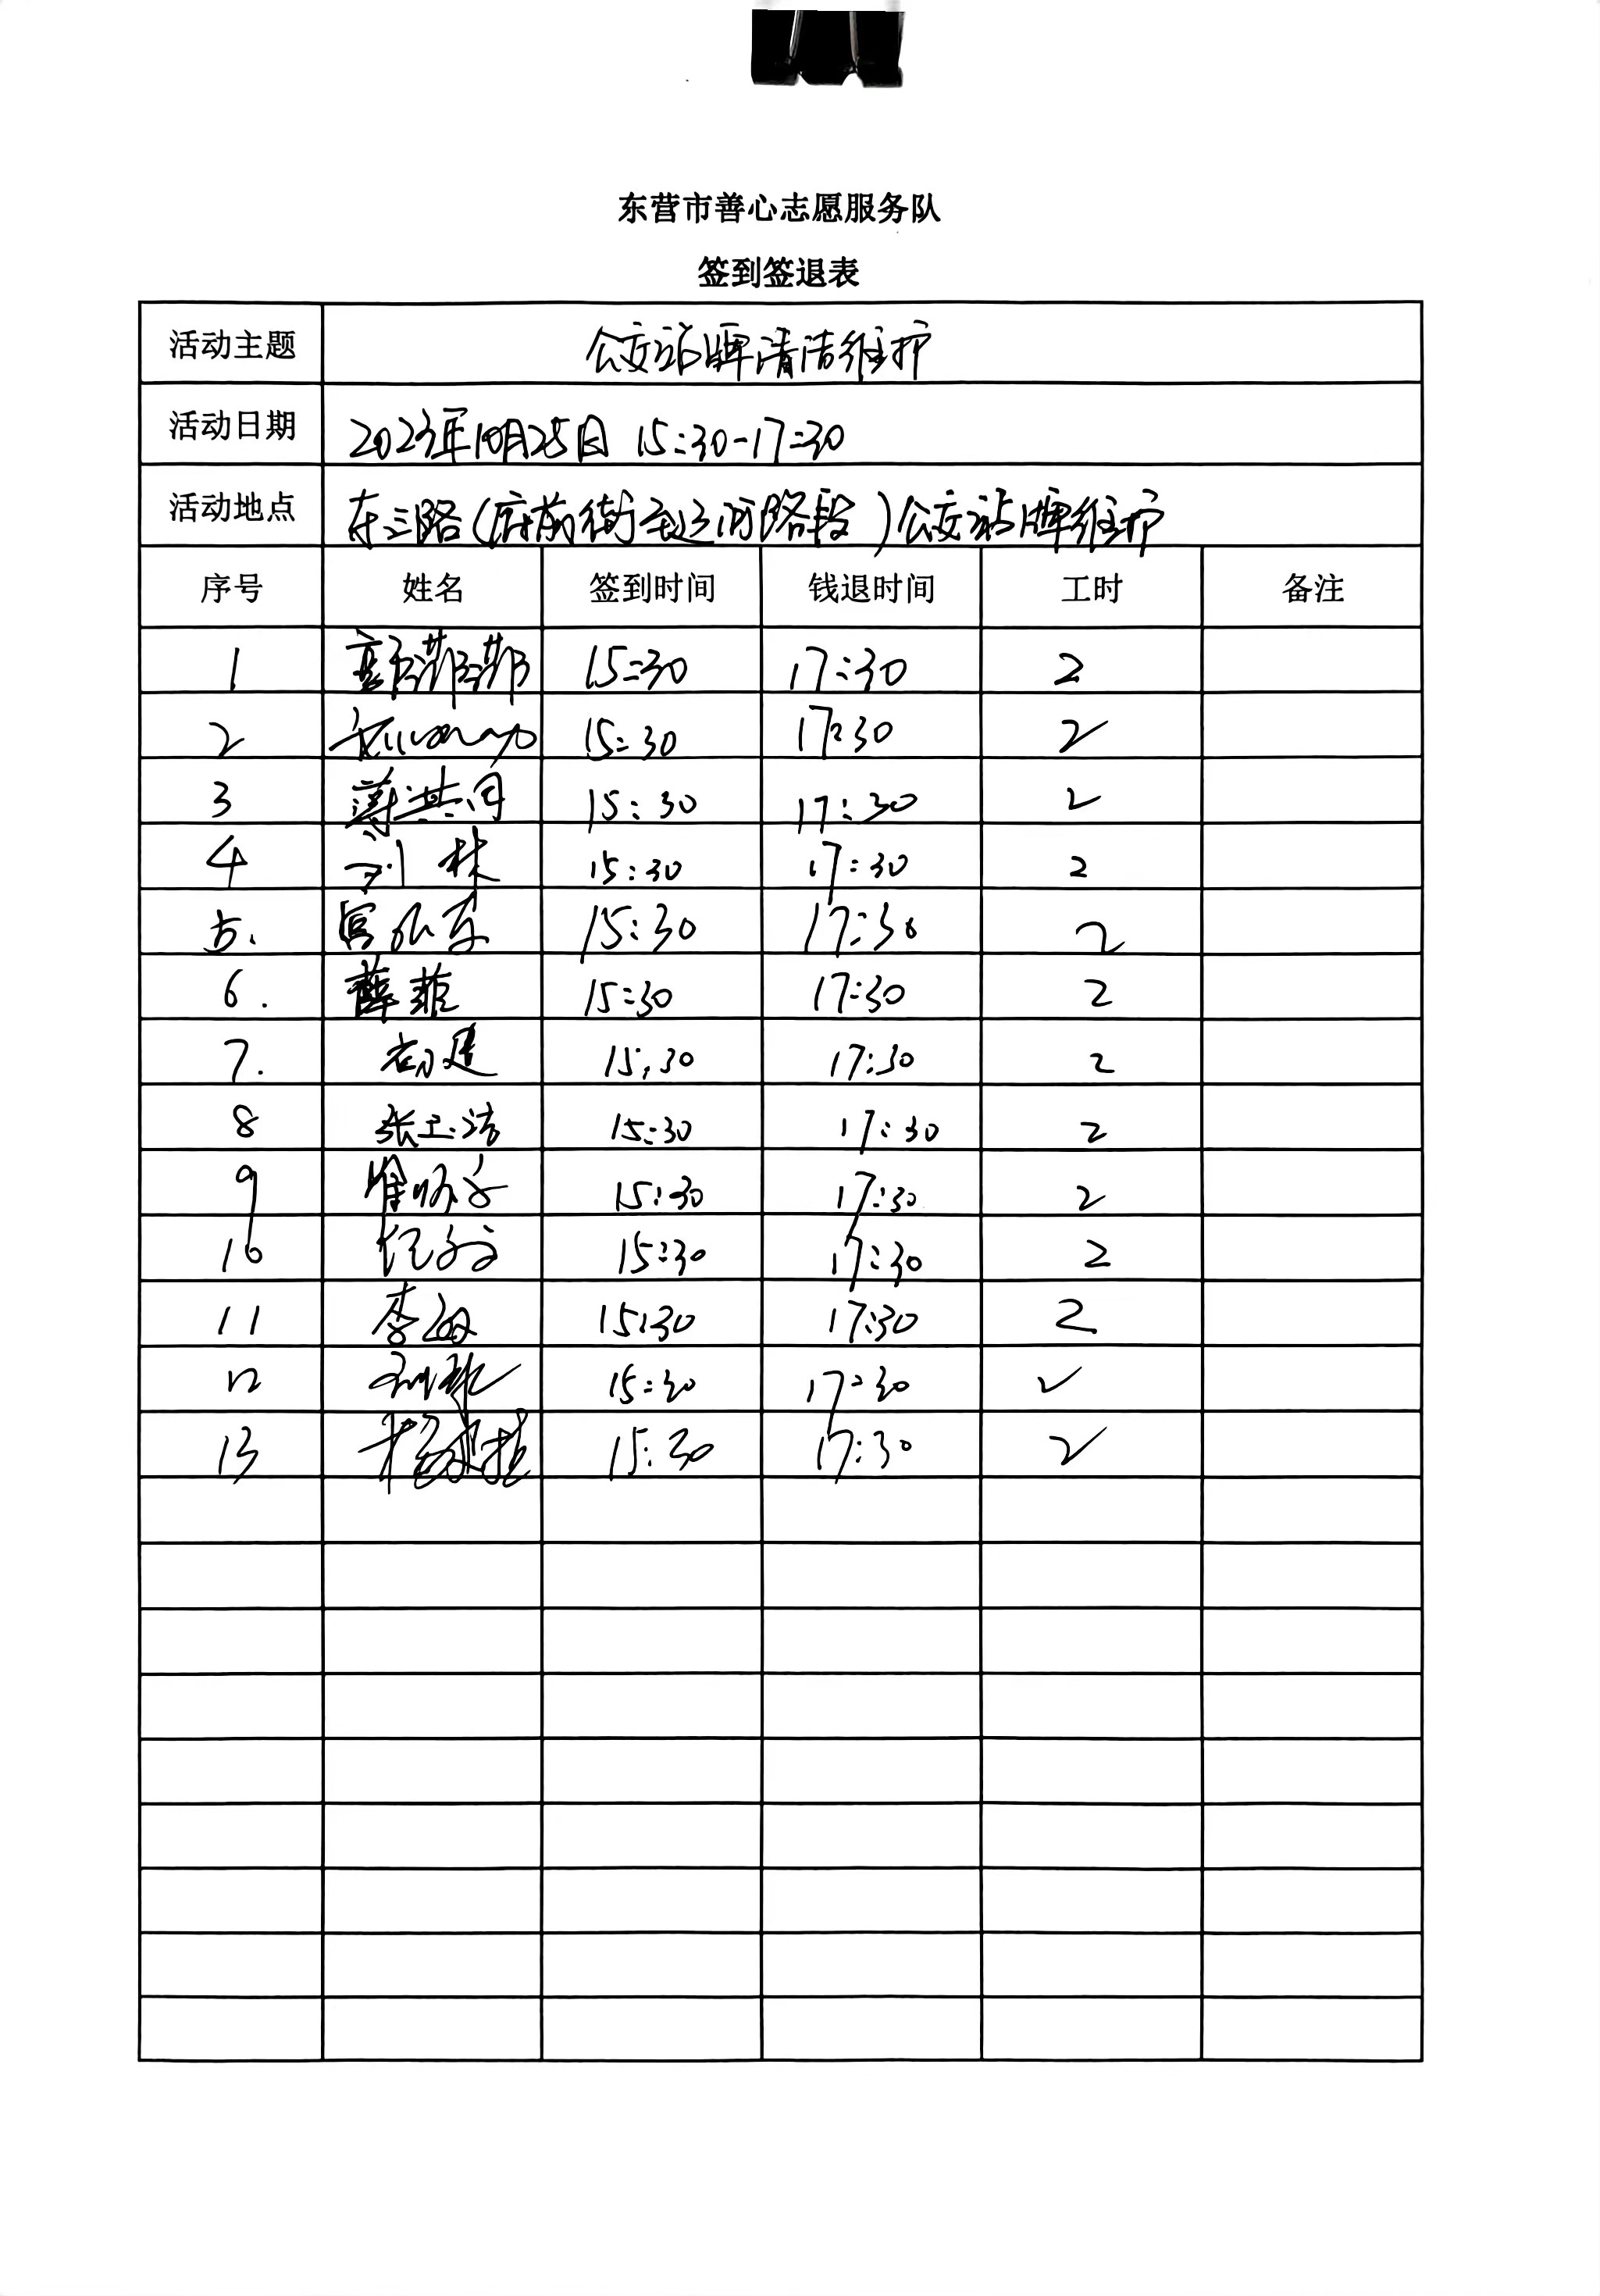 东营市善心志愿服务队
签到签退表
活动主题 公交站牌清洁维护
活动日期 2023年10月25日 15:30-17:30
活动地点 东三路(府前街至辽河路段)公交站牌维护
序号 姓名 签到时间 钱退时间 工时 备注
1 15:30 17:30 2
2 15:30 17:30 2
3 15:30 17:30 2
4 刘林 15:30 17:30 2
5. 15:30 17:30 2
6. 薛菲 15:30 17:30 2
7. 15:30 17:30 2
8 张卫洁 15:30 17:30 2
9 15:30 17:30 2
10 15:30 17:30 2
11 李敏 15:30 17:30 2
12 15:30 17:30 2
13 15:30 17:30 2